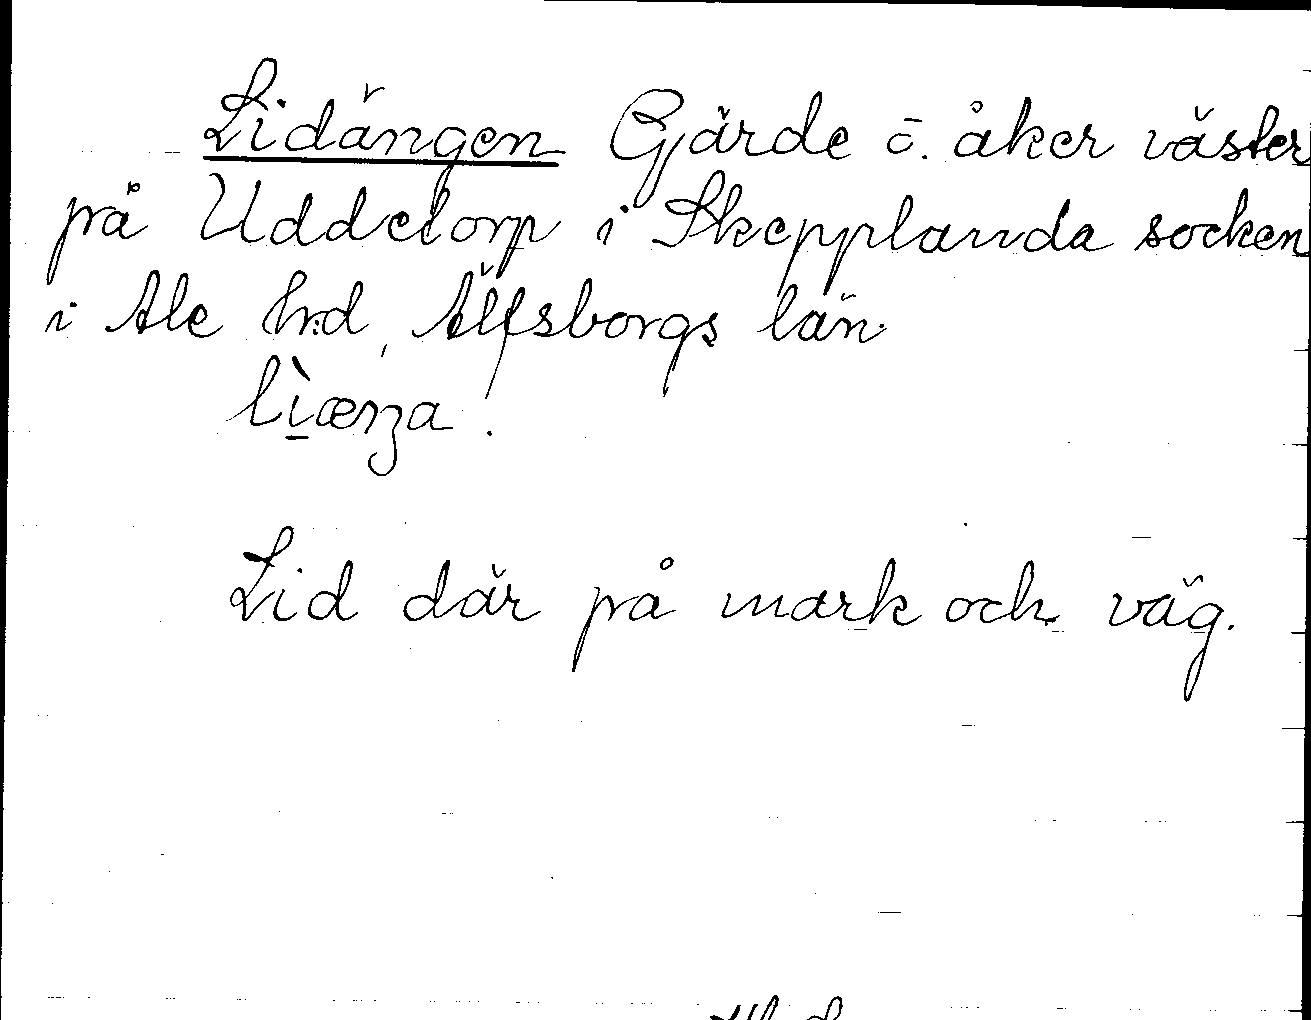 Lidängen Gärde o. åker väster
på Uddetorp i Skepplanda socken
i Ale hrd, Älfsborgs län.
Lid där på mark och väg.